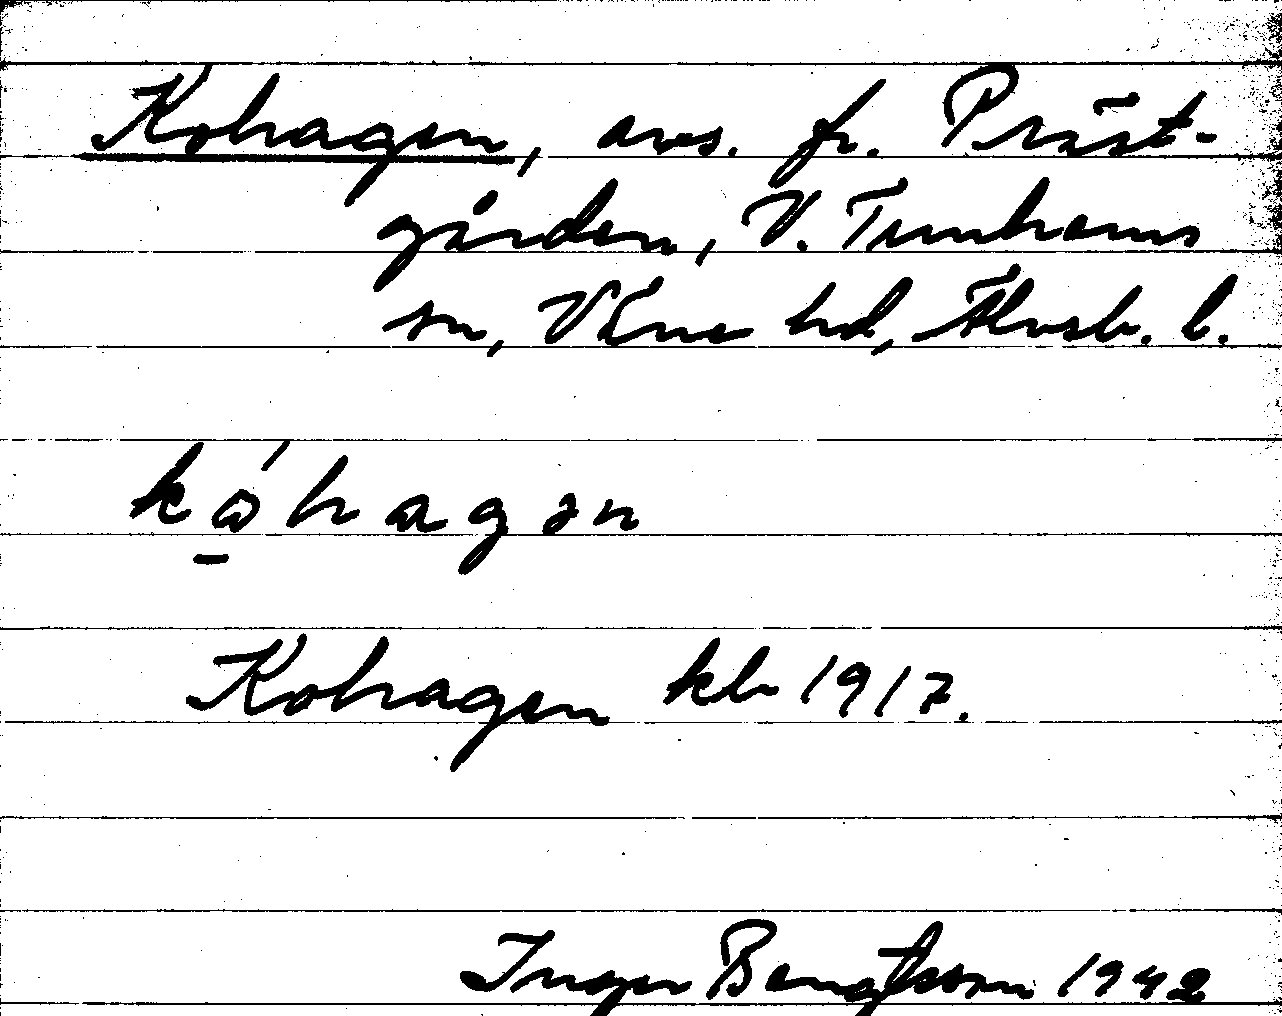 Kohagen, avs. fr. Präst-
gården, V. Tunhems
sn, Väne hd, Älvsb. l.
kώ̲hagən
Kohagen kb 1917.
Inger Bengtsson 1942